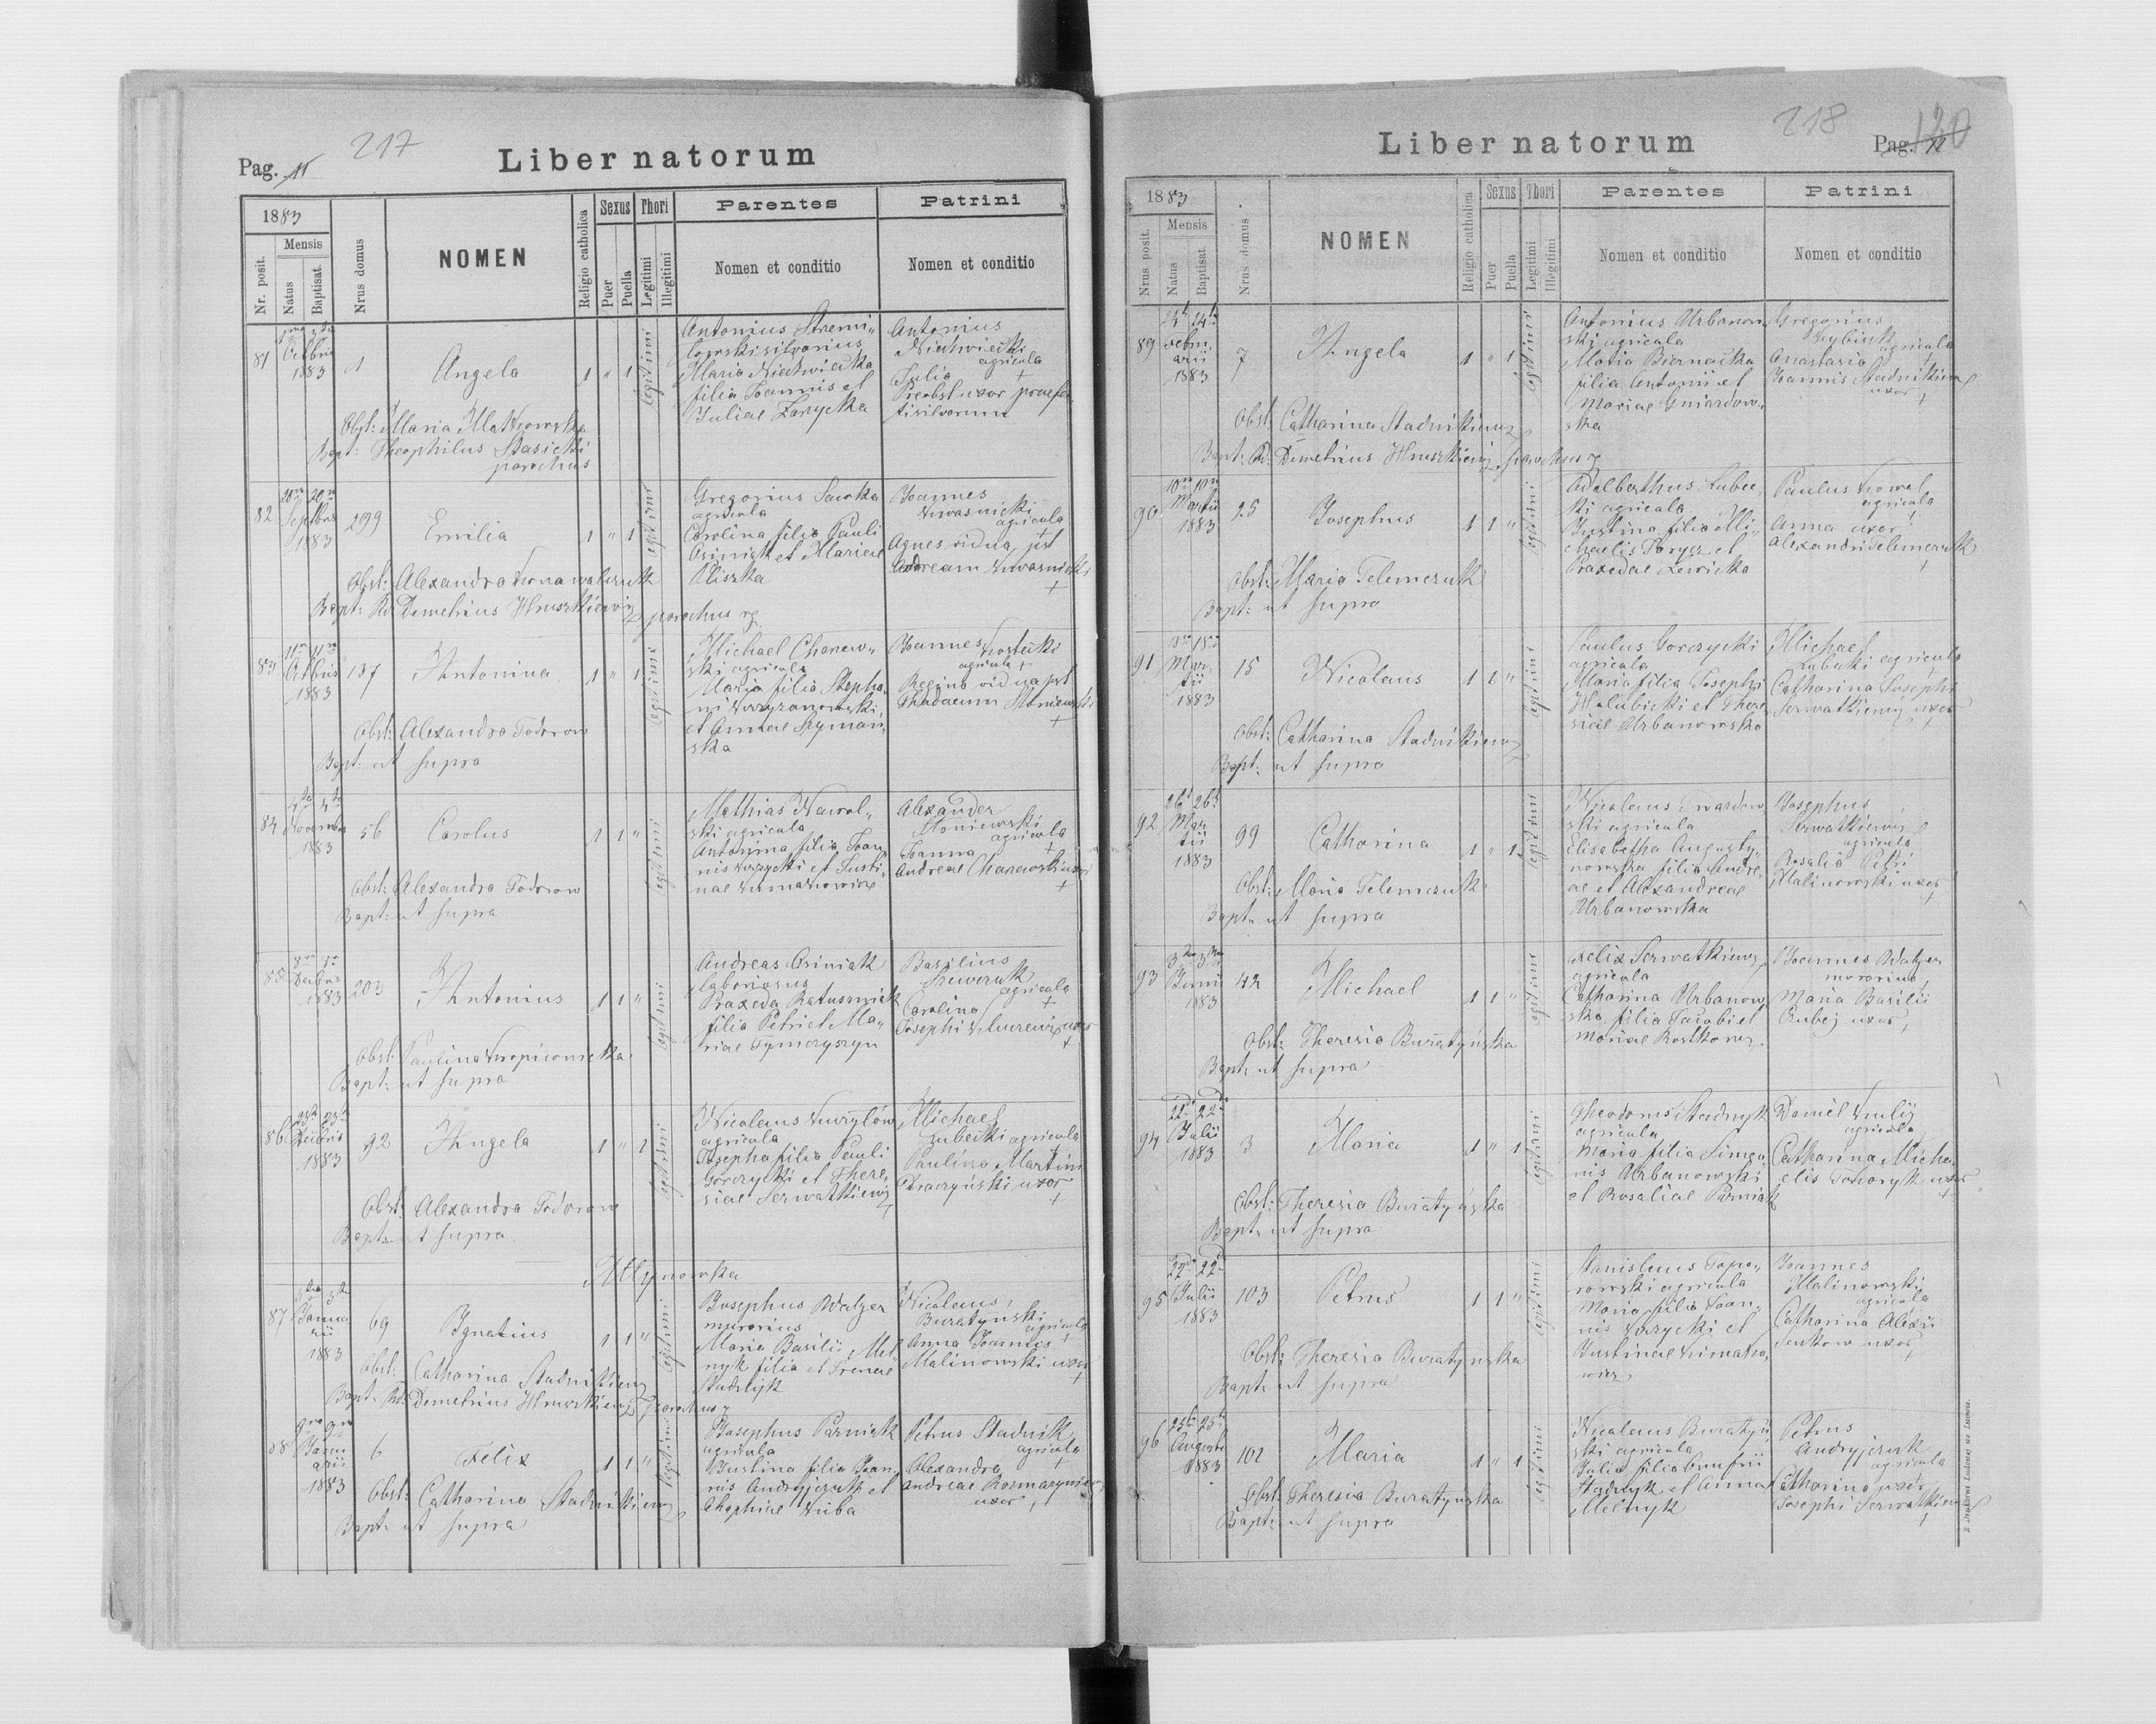 217
Pag. 11
Liber natorum
1883
Nr. posit.
Mensis
Natus
Baptisat.
Nrus domus
NOMEN
Religio catholica
Sexus
Puer
Puella
Thori
Legitimi
Illegitimi
Parentes
Nomen et conditio
Patrini
Nomen et conditio
81
1883
1
Angela
1 " 1
legitimi
Antonius
silvarius
Maria Niedzwiecka
filia Joannis et
Juliae Zarycka
Antonius
Niedzwiecki
agricola
Julia
uxor praefe
ti silvorum
Obst: Maria
Bapt: Theophilus Stasicki
parochus
82
1883
299
Emilia
1 " 1
legitimi
Gregorius Sawka
agricola
Carolina filia Pauli
Osiniak et Mariae
Kliszka
Joannes
Kwasnicki
agricola
Agnes vidua pst
Andream Kwasnicki
Obst: Alexandra
Bapt: Rd Demetrius Hruszkiewicz parochus rg.
83
1883
137
Antonina
1 " 1
legitimi
Michael Charew-
ski agricola
Maria filia Stepha-
ni
et Annae Szyman-
ska
Joannes Kostecki
agricola
Regina vidua pst
Thadaeum Sloniewski
Obst: Alexandra Todorow
Bapt: ut supra
84
Novembr
1883
56
Carolus
1 1 "
legitimi
Mathias Nawol-
ski agricola
Antonina filia Joan-
nis Krzycki et Justi-
nae
Alexander
Sloniewski
agricola
Joanna
Andreae Charewski uxor
Obst: Alexandra Todorow
Bapt: ut supra
85
1883
203
Antonius
1 1 "
legitimi
Andreas Osiniak
laboriosus
Praxeda Ratuszniak
filia Petri et Ma-
riae Tymczyszyn
Basilius
Szewczuk
agricola
Carolina
Josephi uxor
Obst: Paulina Kropiwnicka
Bapt: ut supra
86
1883
92
Angela
1 " 1
legitimi
Nicolaus Kuryłów
agricola
Josepha filia Pauli
Gorczycki et There-
siae Serwatkiewicz
Michael
Zubecki agricola
Paulina Martini
uxor
Obst: Alexandra Todorow
Bapt: ut supra
Młynowka
87
Janua
rii
1883
69
Ignatius
1 1 "
legitimi
Josephus Walzer
murarius
Maria Basilii Mel-
nyk filia et Irenae
Stadnyk
Nicolaus
Buratynski
agricola
Anna Joannis
Malinowski uxor
Obst: Catharina Stadnikiewicz
Bapt: Rd: Demetrius Hruszkiewicz parochus
88
Janu
arii
1883
6
Felix
1 1 "
legitimi
Josephus Parniak
agricola
Justina filia Joan-
nis Andryjczuk et
Sophiae Kuba
Petrus Stadnik
agricola
Alexandra
Andreae
uxor
Obst: Catharina Stadnikiewicz
Bapt: ut supra
218
Liber natorum
Pag. 12
120
1883
Nrus posit.
Mensis
Natus
Baptisat.
Nrus domus
NOMEN
Religio catholica
Sexus
Puer
Puella
Thori
Legitimi
Illegitimi
Parentes
Nomen et conditio
Patrini
Nomen et conditio
89
24 24
Febru-
arii
1883
7
Angela
1 " 1
legitimi
Antonius Urbanow-
ski agricola
Maria Biernacka
filia Antonii et
Mariae Gniazdow-
ska
Gregorius
agricola
Anastasia
Joannis Stadnikiewicz
uxor
Obst: Catharina Stadnikiewicz
Bapt: Rd: Demetrius Hruszkiewicz parochus
90
10 10
Martii
1883
25
Josephus
1 1 "
legitimi
Adalberthus Zubec-
ki agricola
Justina filia Mi-
chaelis et
Praxedae Lewicka
Paulus Kowal
agricola
Anna uxor
Alexandri Telemczuk
Obst: Maria Telemczuk
Bapt: ut supra
91
Mar-
tii
1883
15
Nicolaus
1 1 "
legitimi
Paulus Gorczycki
agricola
Maria filia Josephi
Holubicki et There
siae Urbanowska
Michael
Zubecki agricola
Catharina Josephi
Serwatkiewicz uxor
Obst: Catharina Stadnikiewicz
Bapt: ut supra
92
26 26
Mar
tii
1883
99
Catharina
1 " 1
legitimi
Nicolaus Twardow-
ski agricola
Elisabetha Augusty-
nowska filia Andre-
ae et Alexandrae
Urbanowska
Josephus
Serwatkiewicz
agricola
Rosalia Petri
Malinowski uxor
Obst: Maria Telemczuk
Bapt: ut supra
93
1883
42
Michael
1 1 "
legitimi
Felix Serwatkiewicz
agricola
Catharina Urbanow-
ska filia Jacobi et
Mariae
Joannes Walzer
murarius
Maria Basilii
uxor
Obst: Theresia Buratyńska
Bapt: ut supra
94
22 22
Julii
1883
3
Maria
1 " 1
legitimi
Theodorus Stadnyk
agricola
Maria filia Simeo-
nis Urbanowski
et Rosaliae Parniak
Daniel
agricola
Catharina Micha-
elis uxor
Obst: Theresia Buratyńska
Bapt: ut supra
95
22 22
Julii
1883
103
Petrus
1 1 "
legitimi
Stanislaus Topo-
rowski agricola
Maria filia Joan-
nis Krzycki et
Justinae
Joannes
Malinowski
agricola
Catharina Alexii
Senkow uxor
Obst: Theresia Buratynska
Bapt: ut supra
96
25 25
Augusti
1883
102
Maria
1 " 1
legitimi
Nicolaus Buratyń-
ski agricola
Julia filia Onufrii
Stadnyk et Anna
Melnyk
Petrus
Andryjczuk
agricola
Catharina uxor
Josephi Serwatkiewicz
Obst: Theresia Buratynska
Bapt: ut supra
Z Drukarni Ludowej we Lwowie.